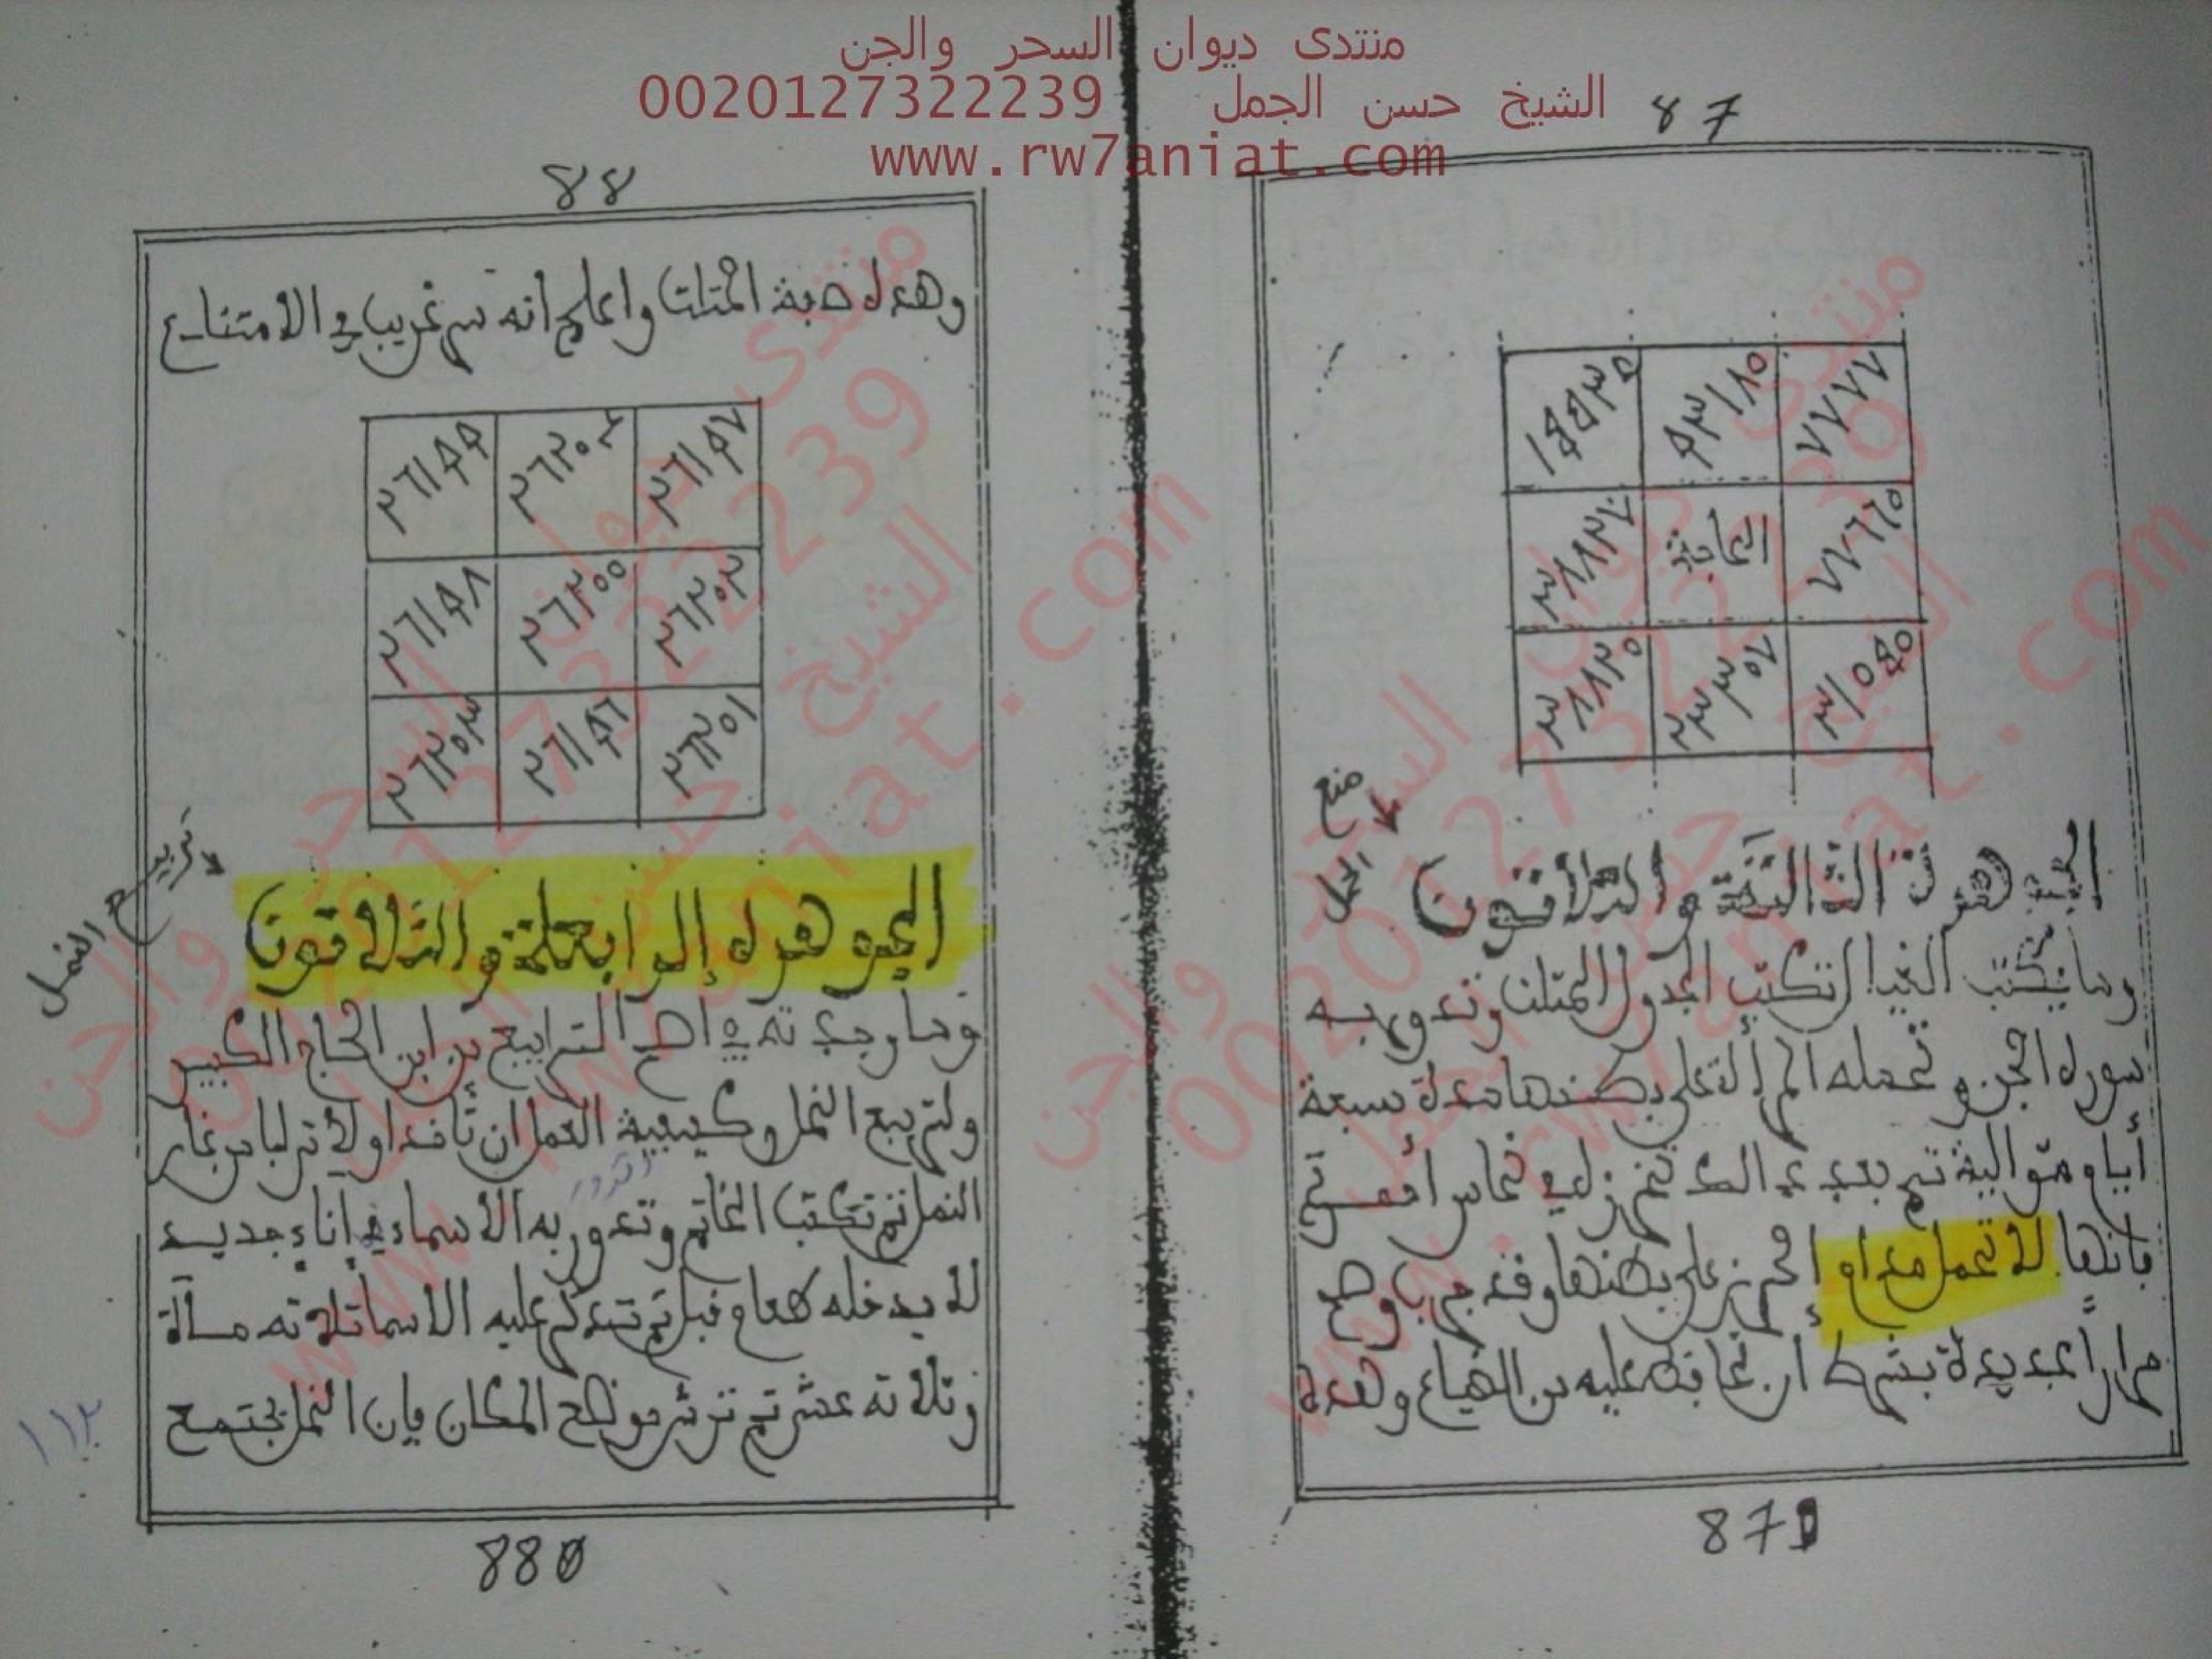 منتدى ديوان السحر والجن
الشيخ حسن الجمل 0020127322239
www.rw7aniat.com
87
الخامة
منع
الحمل
الجوهرة الثالثة والثلاثون
ومما يكتب تكتب الجدول المثلث وتدور به
سورة الجن و تحمله المرأة على بطنها مدة سبعة
أيام متوالية ثم بعد
فإنها لا تحمل مدام الحرز على بطنها وقد جرب وصح
مرارا عديدة بشرط أن تحافظ عليه من الضياع وهذه
871
88
وهذه صفة المثلث واعلم انه سر غريب في الامتناع
٢٦١٩٩ ٢٦٢٠٤ ٢٦١٩٧
٢٦١٩٨ ٢٦٢٠٠ ٢٦٢٠٢
٢٦٢٠٣ ٢٦١٩٦ ٢٦٢٠١
تربيع النمل
الجوهرة الرابعة والثلاثون
ومما وجدته في الترابيع من ابن الحاج الكبير
ولتربيع النمل وكيفية العمل ان تأخذ اولا ترابا من غار
النمل ثم تكتب الخاتم وتدور به الأسماء في إناء جديد
لا يدخله طعام قبل ثم تذكر عليه الاسماء ثلاثه مائة
وثلاثه عشر ثم ترش موضع المكان فإن النمل يجتمع
١١٢
880